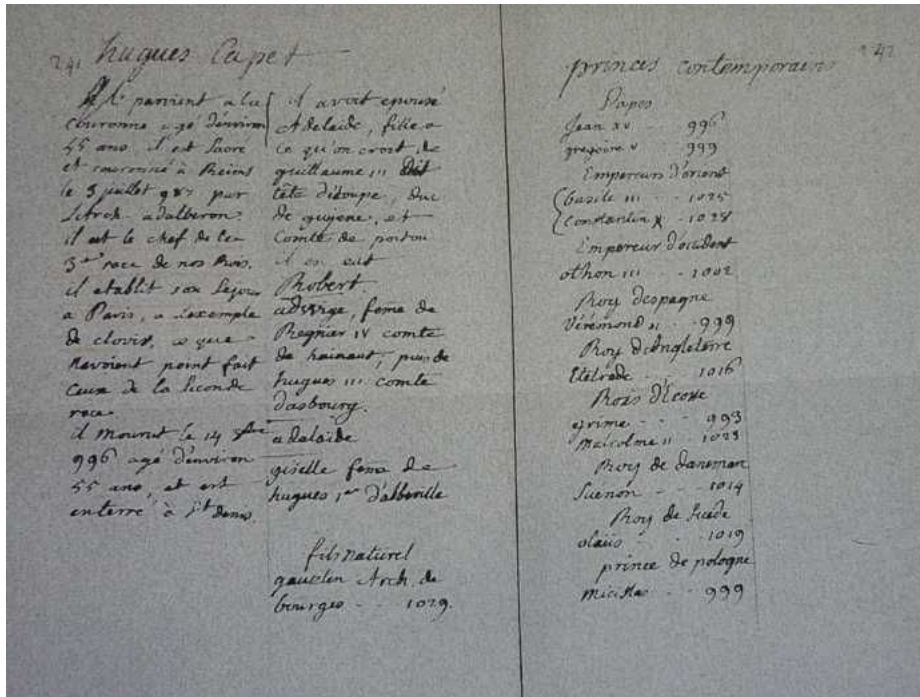 241 hugues Capet
Il parvient a la
couronne agé d'environ
45 ans. il est Sacré
et couronné à Reims
le 3 juillet 987 par
L'Arch. adalberon.
il est le chef de la
3me race de nos Rois.
il etablit son Sejour
a Paris, a l'exemple
de clovis, ce que
n'avoient point fait
Ceux de la Seconde
race.
il mourut le 14 8bre
996 agé d'environ
55 ans, et est
enterré à St denis.
il avoit epousé
Adelaide, fille a
ce qu'on croit, de
guillaume III dit
tête d'étoupe, duc
de guyene, et
Comte de poitou
il en eut
Robert.
advvige, feme de
Regnier IV comte
de hainaut, puis de
hugues III comte
dasbourg.
adelaïde
giselle feme de
hugues 1er d'abbeville
fils naturel
gauzlin Arch. de
bourges - - 1029.
princes contemporains 242
Papes
Jean XV 996
gregoire V 999
Empereurs d'orient
basile III - - 1025
Constantin X - 1028
Empereur d'occident
othon III - - 1002
Roy d'espagne
Vérémond II - - 999
Roy d'Angleterre
Etelrede - - 1016
Rois d'Ecosse
grime - - - 993
Malcolme II - 1023
Roy de danemarc
Suénon - - - 1014
Roy de Suede
olaüs - - - 1019
prince de pologne
Micislas - - 999